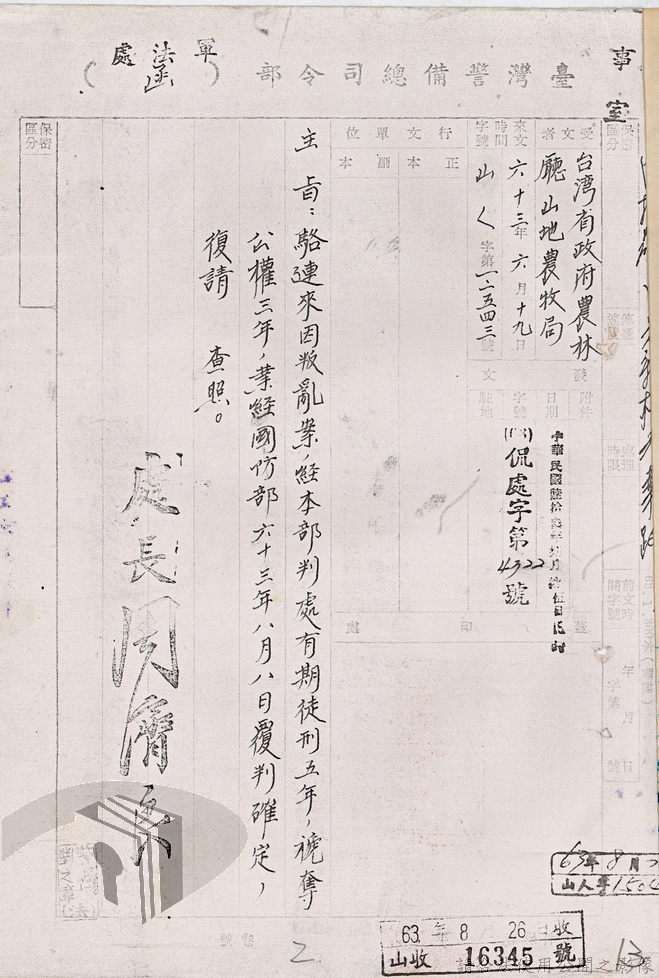 臺灣警備總司令部（軍法處函）
事室
保密區分
受文者
台灣省政府農林
廳山地農牧局
來文時間字號
六十三年六月十九日
山人字第一二五四三號
行文單位
正本
副本
發文
附件
日期
字號
駐地
(63)侃處字第4322號
蓋印處
主旨：駱連來因叛亂案，經本部判處有期徒刑五年，褫奪
公權三年，業經國防部六十三年八月八日覆判確定，
復請　查照。
處長周濟良
保密區分
傳遞速度
處理時限
前文時間字號
年月日
字第號
63年8月
山人字
63年8月26日收
山收16345號
卷號
2
13